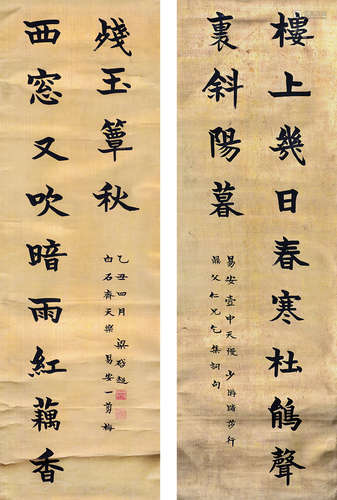 樓上幾日春寒杜鵑聲
裏斜陽暮
易安壺中天慢 少游踏莎行
鼎父仁兄乞集詞句
西窓又吹暗雨紅藕香
殘玉簟秋
乙丑四月 梁啓超
白石齊天樂 易安一剪梅